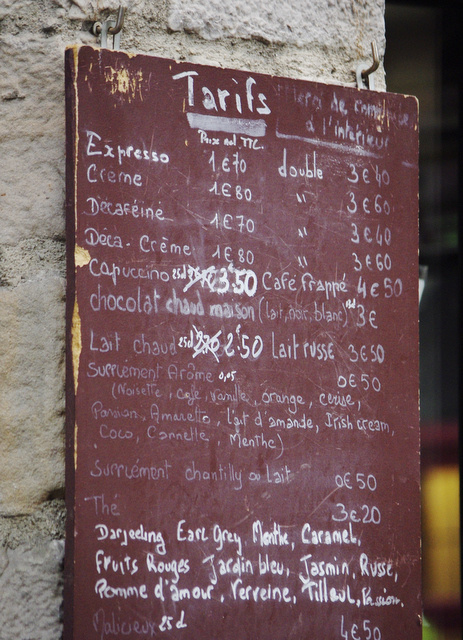 Tarifs
de
à l'intérieur
Prix net TTC
Expresso 1€70 double 3€40
Crème 1€80 " 3€60
Décaféiné 1€70 " 3€40
Déca-Crème 1€80 " 3€60
Capuccino 25cl 3€50 Café frappé 4€50
chocolat chaud maison (lait, noir, blanc) 3€
Lait chaud 25cl 2€50 Lait russe 3€50
Supplément Arôme 0€50
(Noisette, café, vanille, orange, cerise,
Amaretto, lait d'amande, Irish cream,
Coco, Cannelle, Menthe)
Supplément chantilly ou Lait 0€50
Thé 3€20
Darjeeling Earl Grey, Menthe, Caramel,
Fruits Rouges Jardin bleu, Jasmin, Russe,
Pomme d'amour, Verveine, Tilleul, Passion.
Malicieux 25cl 4€50